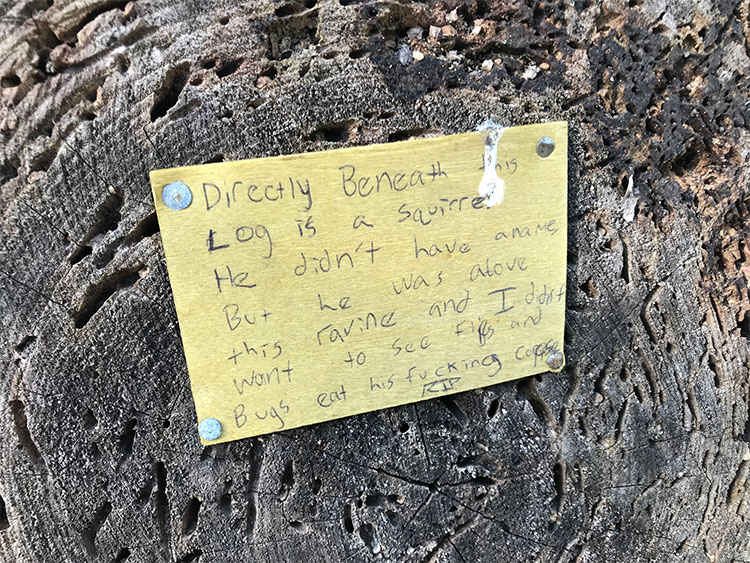 Directly Beneath this
Log is a squirrel
He didn't have a name,
But he was above
this ravine and I didn't
want to see flies and
Bugs eat his fucking corpse
RIP